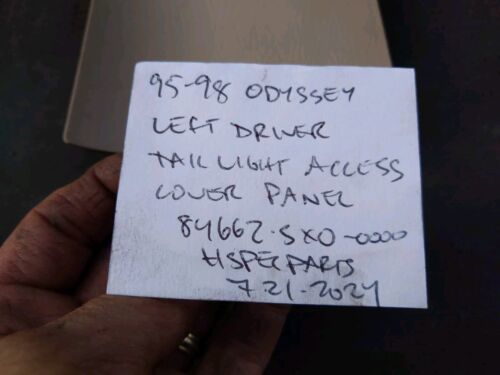 95-98 ODYSSEY
LEFT DRIVER
TAIL LIGHT ACCESS
COVER PANEL
84662-SX0-0000
HSPECPARTS
7 21-2024